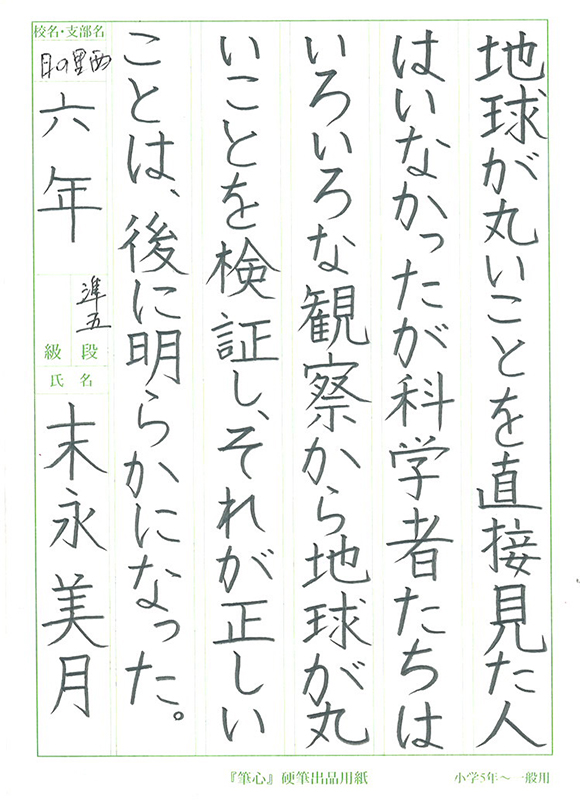 地球が丸いことを直接見た人
はいなかったが科学者たちは
いろいろな観察から地球が丸
いことを検証し、それが正しい
ことは、後に明らかになった。
校名・支部名
日の里西
六年
準五
段
級
氏名
末永美月
『筆心』硬筆出品用紙
小学5年～一般用